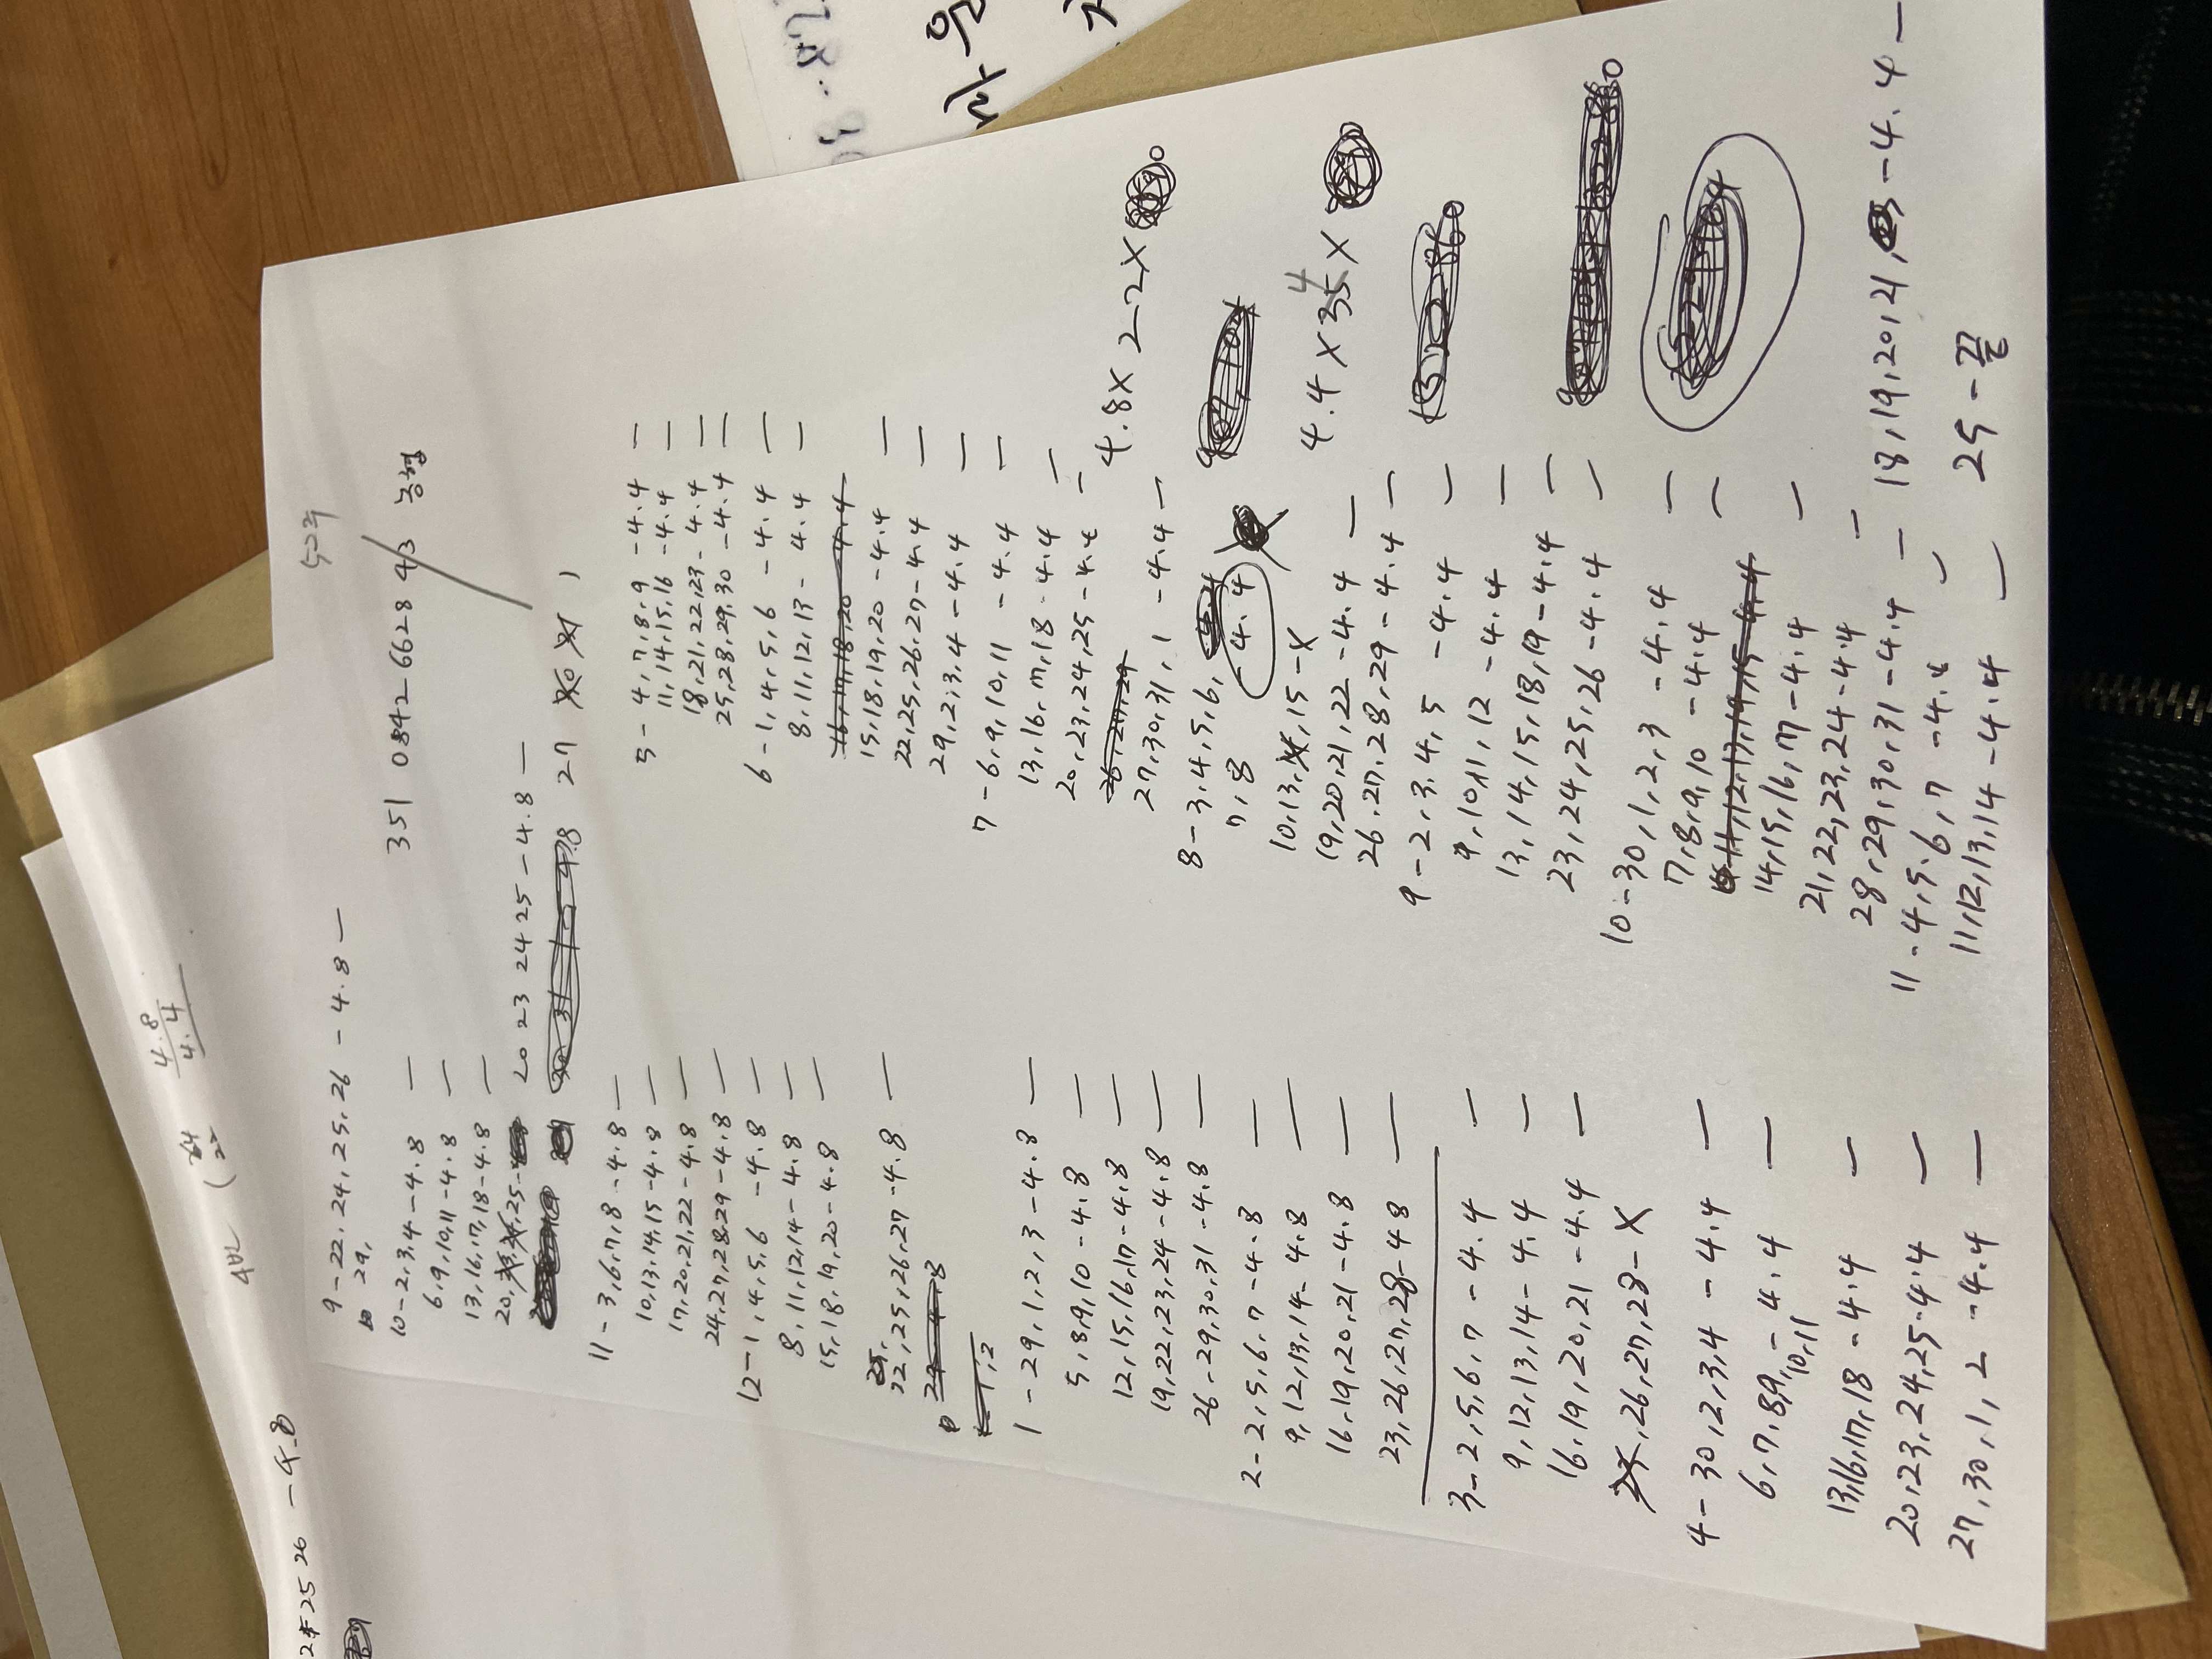 24 25 26 - 4.8
4번 (
4.8
4.4
9-22, 24, 25, 26 - 4.8 -
29,
10-2,3,4 - 4.8 -
6,9,10,11 - 4.8 -
13,16,17,18 - 4.8 -
20, 25 - 20 23 24 25 - 4.8 -
27
11 - 3,6,7,8 - 4.8 -
10,13,14,15 - 4.8 -
17,20,21,22 - 4.8 -
24,27,28,29 - 4.8 -
12 - 1,4,5,6 - 4.8 -
8,11,12,14 - 4.8 -
15,18,19,20 - 4.8 -
22,25,26,27 - 4.8 -
1,2
1 - 29,1,2,3 - 4.8 -
5,8,9,10 - 4.8 -
12,15,16,17 - 4.8 -
19,22,23,24 - 4.8 -
26 - 29,30,31 - 4.8 -
2 - 2,5,6,7 - 4.8 -
9,12,13,14 - 4.8 -
16,19,20,21 - 4.8 -
23,26,27,28 - 4.8 -
3 - 2,5,6,7 - 4.4 -
9,12,13,14 - 4.4 -
16,19,20,21 - 4.4 -
26,27,28 - X
4 - 30,2,3,4 - 4.4 -
6,7,8,9, - 4.4 -
10,11
13,16,17,18 - 4.4 -
20,23,24,25 - 4.4 -
27,30,1,2 - 4.4 -
351 0842 6628 43 농협
5 - 4,7,8,9 - 4.4 -
11,14,15,16 - 4.4 -
18,21,22,23 - 4.4 -
25,28,29,30 - 4.4 -
6 - 1,4,5,6 - 4.4 -
8,11,12,13 - 4.4 -
16,17,18,20 - 4.4
15,18,19,20 - 4.4 -
22,25,26,27 - 4.4 -
29,2,3,4 - 4.4 -
7 - 6,9,10,11 - 4.4 -
13,16,17,18 - 4.4 -
20,23,24,25 - 4.4 -
26,27,29
27,30,31,1 - 4.4 -
8 - 3,4,5,6,
7,8 - 4.4
10,13,14,15 - X
19,20,21,22 - 4.4 -
26,27,28,29 - 4.4 -
9 - 2,3,4,5 - 4.4 -
9,10,11,12 - 4.4 -
13,14,15,18,19 - 4.4 -
23,24,25,26 - 4.4 -
10 - 30,1,2,3 - 4.4 -
7,8,9,10 - 4.4 -
11,12,13,14,15 4.4
14,15,16,17 - 4.4 -
21,22,23,24 - 4.4 -
28,29,30,31 - 4.4 -
11 - 4,5,6,7 - 4.4 - 18,19,20,21, - 4.4 -
11,12,13,14 - 4.4 - 25 - 끝
4.8 X 22 X
4.4 X 35 X
4